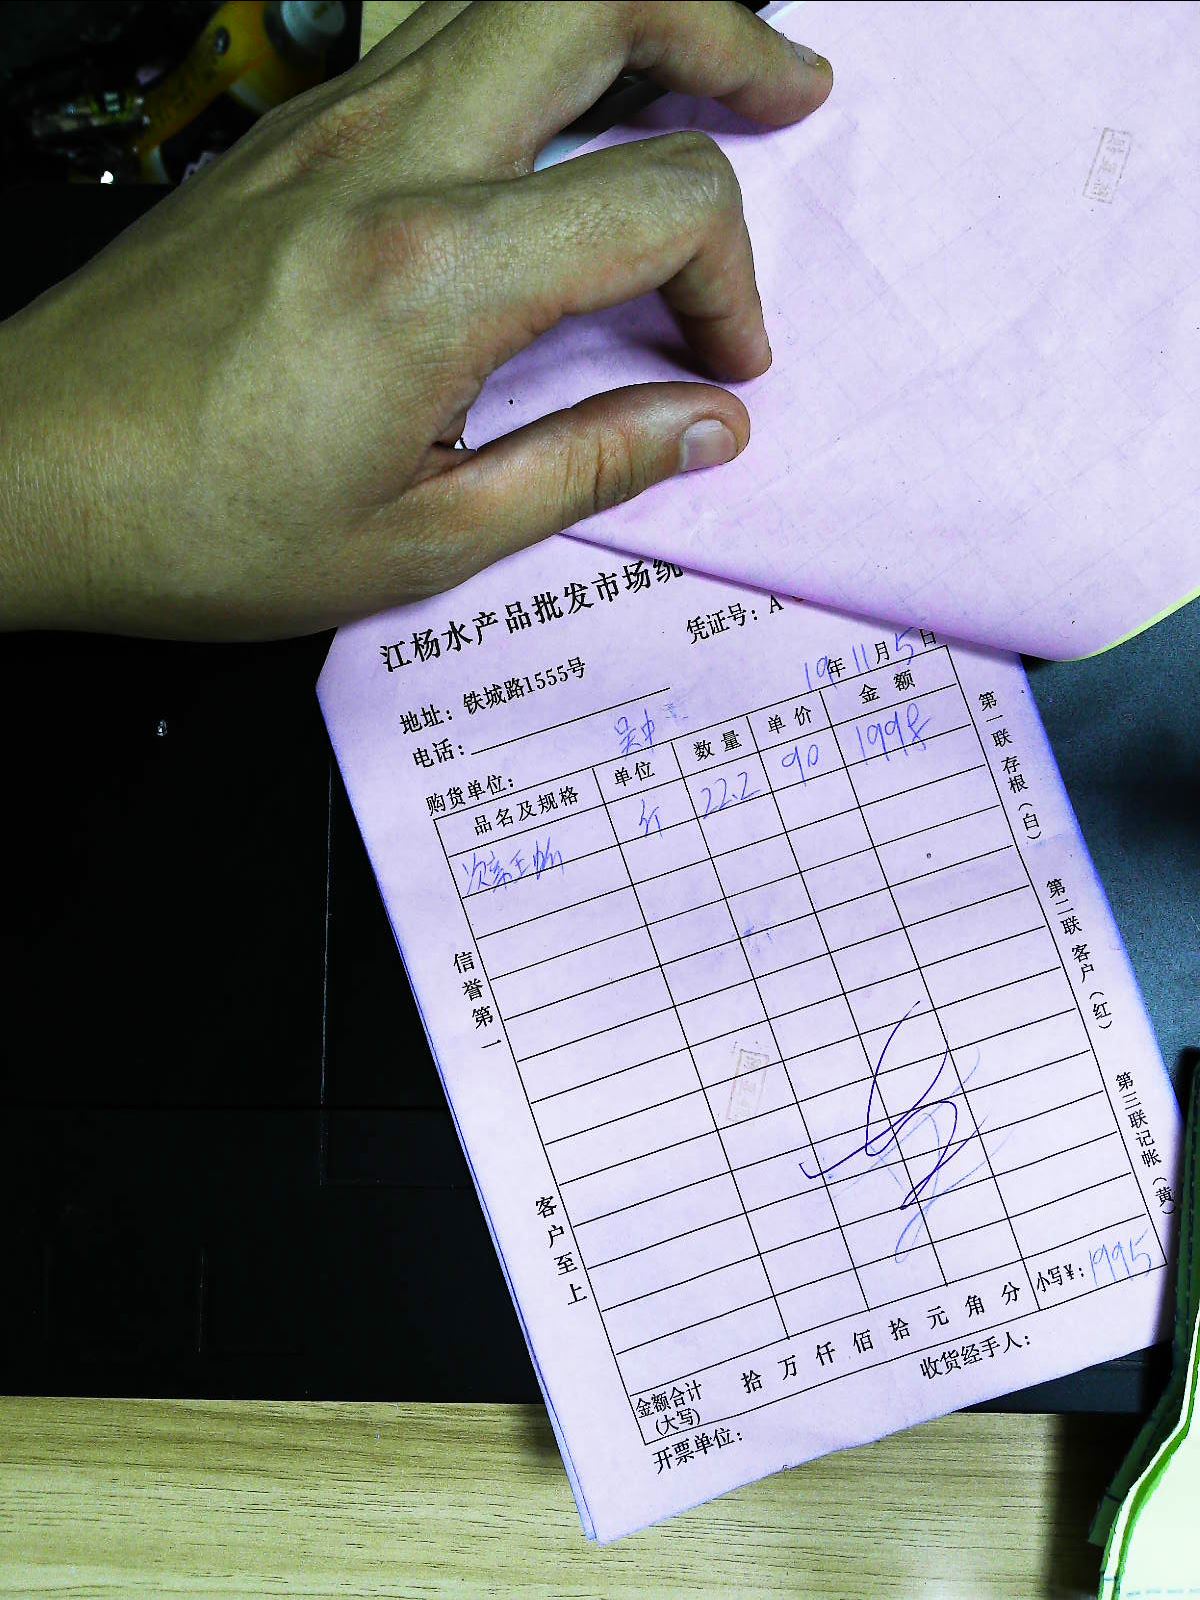 江杨水产品批发市场统
地址：铁城路1555号 凭证号：A
电话：
19年11月5日
购货单位： 吴中
品名及规格 单位 数量 单价 金额
斤 22.2 90 1998
信誉第一
客户至上
第一联 存根（白）
第二联 客户（红）
第三联 记帐（黄）
金额合计(大写) 拾 万 仟 佰 拾 元 角 分 小写¥：1995
开票单位： 收货经手人：